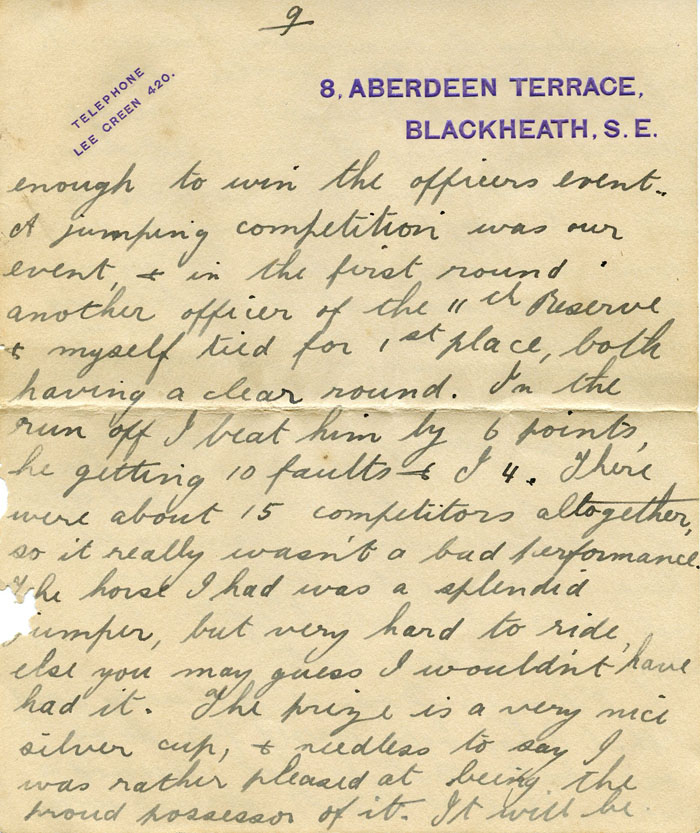 9
TELEPHONE
LEE GREEN 420.
8, ABERDEEN TERRACE,
BLACKHEATH, S.E.
enough to win the officers event.
A jumping competition was our
event, & in the first round
another officer of the 11th Reserve
& myself tied for 1st place, both
having a clear round. In the
run off I beat him by 6 points,
he getting 10 faults & I 4. There
were about 15 competitors altogether,
so it really wasn't a bad performance.
The horse I had was a splendid
jumper, but very hard to ride,
else you may guess I wouldn't have
had it. The prize is a very nice
silver cup, & needless to say I
was rather pleased at being the
proud possessor of it. It will be